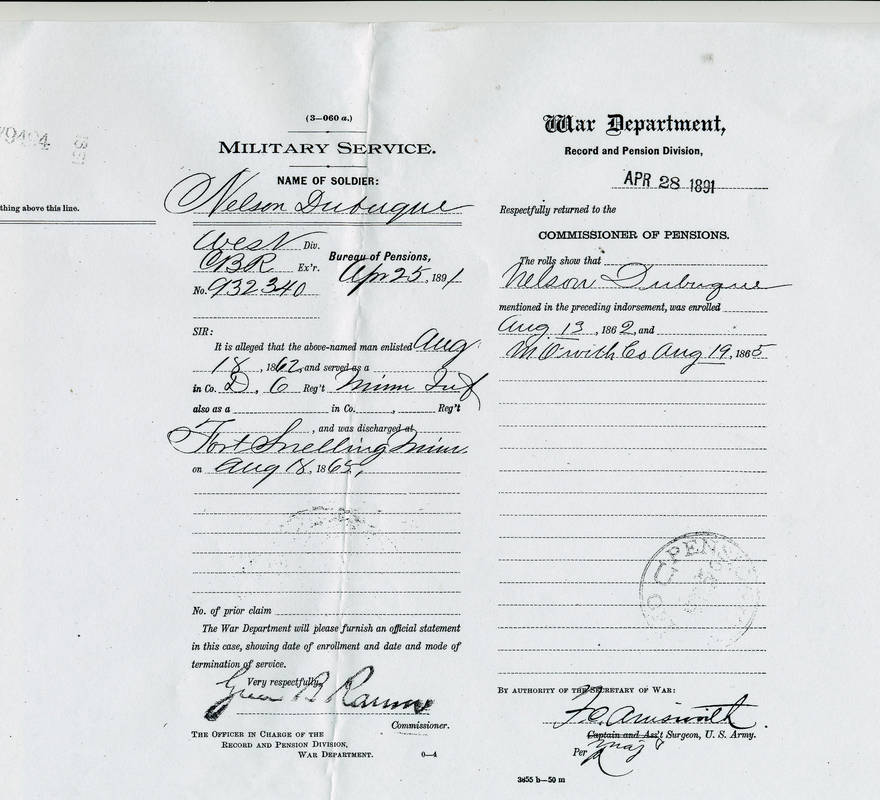 9494
thing above this line.
(3—060 a.)
MILITARY SERVICE.
NAME OF SOLDIER:
Nelson Dubuque
West Div.
CBR Ex'r.
No. 932340
Bureau of Pensions,
Apr 25, 1891
SIR:
It is alleged that the above-named man enlisted Aug
18, 1862, and served as a
in Co. D, 6 Reg't Minn Inf
also as a in Co. , Reg't
, and was discharged at
Fort Snelling Minn.
on Aug 18, 1865,
No. of prior claim
The War Department will please furnish an official statement
in this case, showing date of enrollment and date and mode of
termination of service.
Very respectfully,
Green B Raum
Commissioner.
THE OFFICER IN CHARGE OF THE
RECORD AND PENSION DIVISION,
WAR DEPARTMENT. 0—4
War Department,
Record and Pension Division,
APR 28 1891
Respectfully returned to the
COMMISSIONER OF PENSIONS.
The rolls show that
Nelson Dubuque
mentioned in the preceding indorsement, was enrolled
Aug 13, 1862, and
M.O. with Co Aug 19, 1865
PENS
BY AUTHORITY OF THE SECRETARY OF WAR:
F.C. Ainsworth
Captain and Ass't Surgeon, U. S. Army.
Per Maj
3655 b—50 m